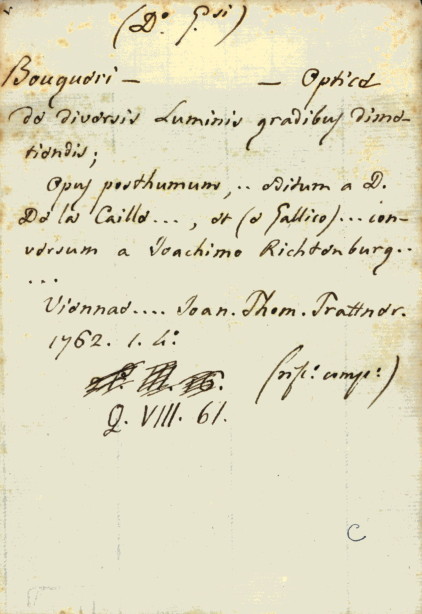 (D.º G.si)
Bougueri — — Optice
de diversis Luminis gradibus dime-
tiendis;
Opus posthumum, .. editum a D.
De la Caille..., et (e Gallico)... con-
versum a Joachimo Richtenburg..
...
Viennae.... Joan. Thom. Trattner.
1762. 1. 4º
Q. VIII. 61.
C